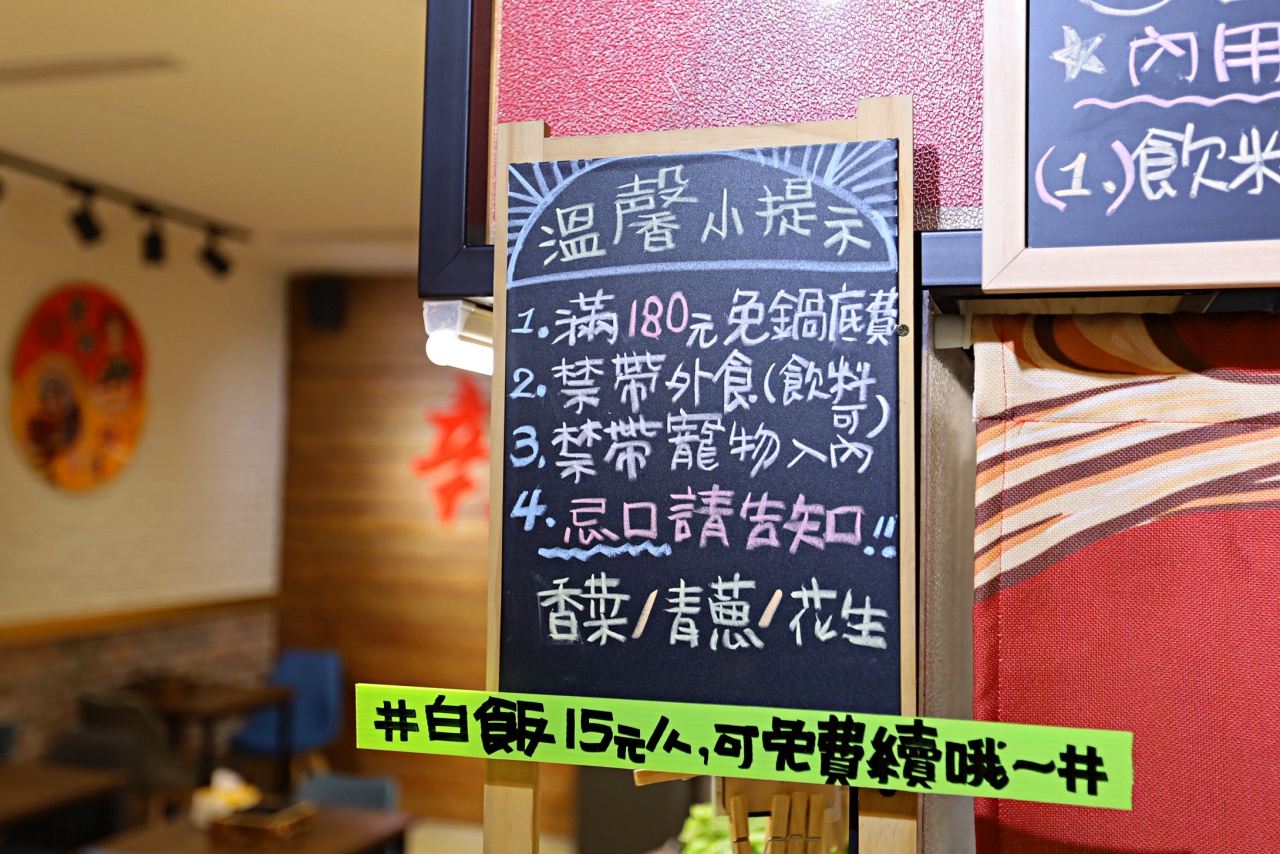 溫馨小提示
1.滿180元免鍋底費
2.禁帶外食(飲料可)
3.禁帶寵物入內
4.忌口請告知!!
香菜/青蔥/花生
#白飯15元/人,可免費續哦~#
☆內用
(1.)飲米